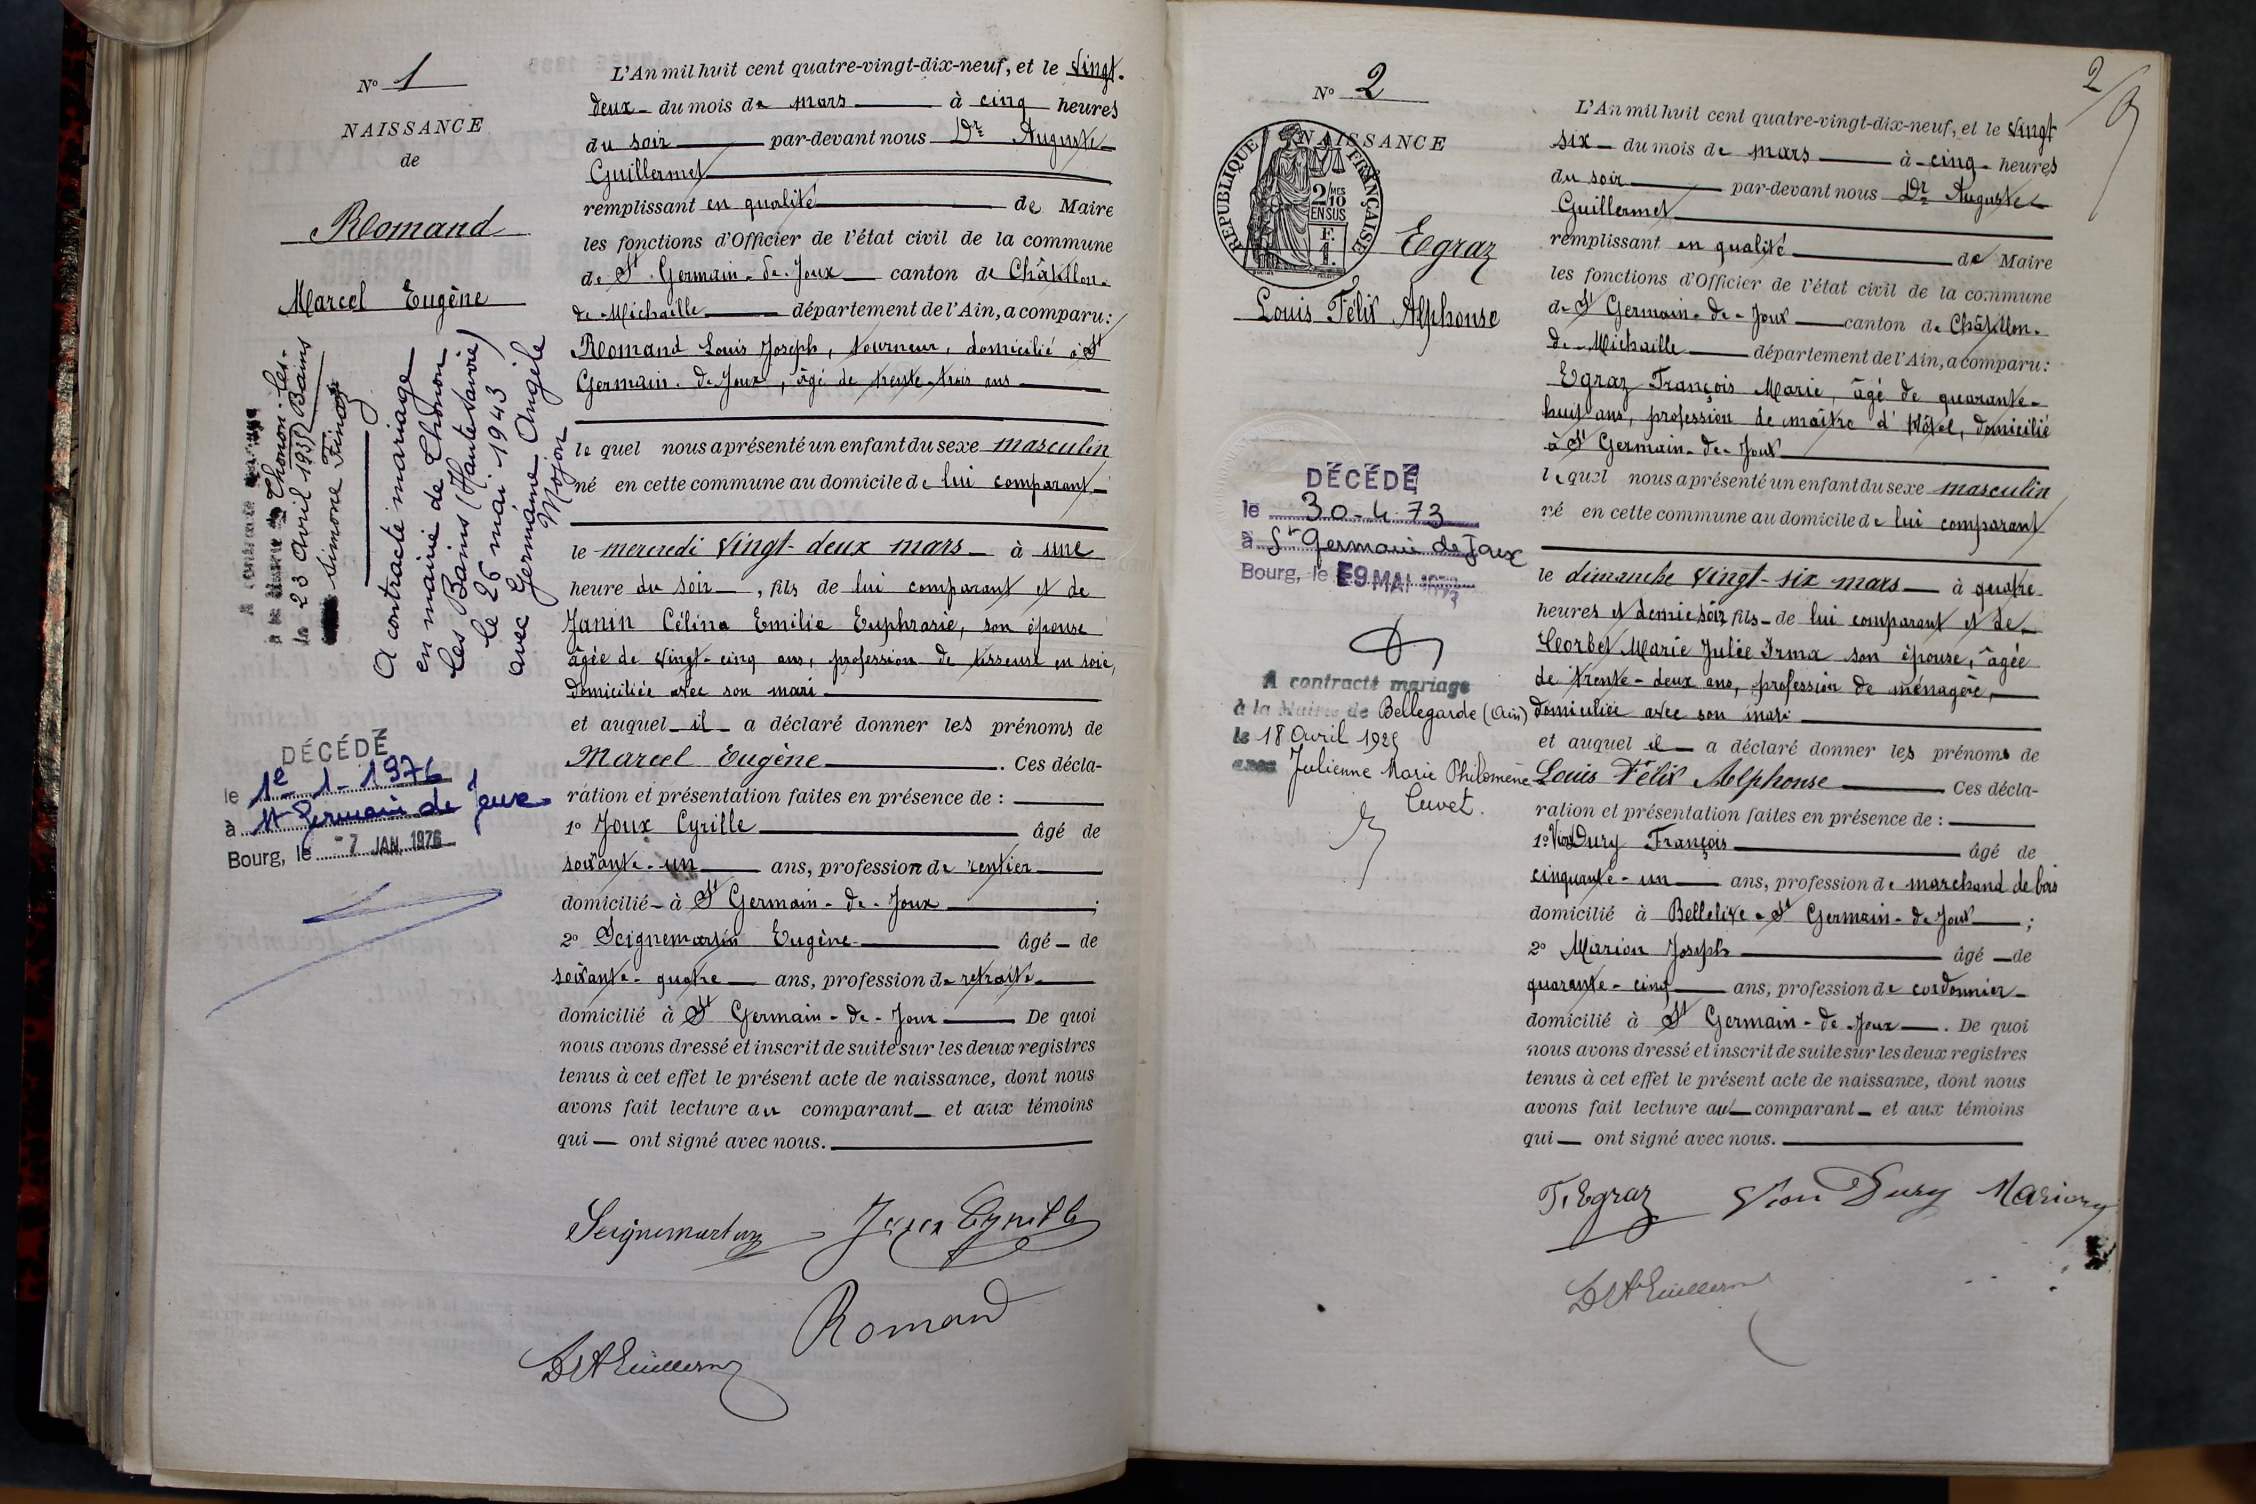 N° 1
NAISSANCE
de
Romand
Marcel Eugène
A contracté mariage
à la Mairie de Thonon-les-
le 23 avril 1935 Bains
Simone Finaz
A contracté mariage
en mairie de Thonon
les Bains (Haute Savoie)
le 26 mai 1943
avec Germaine Angèle
Mojon
DÉCÉDÉ
le 1e - 1 - 1976
à St Germain de Joux
Bourg, le -7 JAN. 1976
L'An mil huit cent quatre-vingt-dix-neuf, et le vingt-
deux - du mois de mars à cinq heures
du soir par-devant nous Dr Auguste
Guillermet
remplissant en qualité de Maire
les fonctions d'Officier de l'état civil de la commune
de St Germain-de-Joux canton de Châtillon-
de-Michaille département de l'Ain, a comparu:
Romand Louis Joseph, tourneur, domicilié à St
Germain-de-Joux, âgé de trente-trois ans
le quel nous a présenté un enfant du sexe masculin
né en cette commune au domicile de lui comparant
le mercredi vingt-deux mars à une
heure du soir, fils de lui comparant et de
Janin Célina Emilie Euphrasie, son épouse
âgée de vingt-cinq ans, profession de tisseuse en soie,
domiciliée avec son mari
et auquel il a déclaré donner les prénoms de
Marcel Eugène. Ces décla-
ration et présentation faites en présence de :
1° Joux Cyrille âgé de
soixante-un ans, profession de rentier
domicilié à St Germain-de-Joux ;
2° Seignemartin Eugène âgé de
soixante-quatre ans, profession de retraité
domicilié à St Germain-de-Joux De quoi
nous avons dressé et inscrit de suite sur les deux registres
tenus à cet effet le présent acte de naissance, dont nous
avons fait lecture au comparant et aux témoins
qui ont signé avec nous.
Seignemartin Joux Cyrille
Romand
Dr A Guillermet
2
N° 2
NAISSANCE
RÉPUBLIQUE FRANÇAISE
2/10 MES
EN SUS
F.
1.
Egraz
Louis Félix Alphonse
DÉCÉDÉ
le 30-4-73
à St Germain de Joux
Bourg, le 9 MAI 1973
A contracté mariage
à la Mairie de Bellegarde (Ain)
le 18 Avril 1925
avec Julienne Marie Philomène
Cuvet.
L'An mil huit cent quatre-vingt-dix-neuf, et le vingt
six - du mois de mars à cinq heures
du soir par-devant nous Dr Auguste
Guillermet
remplissant en qualité de Maire
les fonctions d'Officier de l'état civil de la commune
de St Germain-de-Joux canton de Châtillon-
de-Michaille département de l'Ain, a comparu:
Egraz François Marie, âgé de quarante-
huit ans, profession de maître d'Hôtel, domicilié
à St Germain-de-Joux
le quel nous a présenté un enfant du sexe masculin
né en cette commune au domicile de lui comparant
le dimanche vingt-six mars à quatre
heures et demie soir, fils de lui comparant et de
Corbet Marie Julie Irma son épouse, âgée
de trente-deux ans, profession de ménagère,
domiciliée avec son mari
et auquel il a déclaré donner les prénoms de
Louis Félix Alphonse Ces décla-
ration et présentation faites en présence de :
1° Vion Dury François âgé de
cinquante-un ans, profession de marchand de bois
domicilié à Bellelixe St Germain-de-Joux ;
2° Marion Joseph âgé de
quarante-cinq ans, profession de cordonnier
domicilié à St Germain-de-Joux. De quoi
nous avons dressé et inscrit de suite sur les deux registres
tenus à cet effet le présent acte de naissance, dont nous
avons fait lecture au comparant et aux témoins
qui ont signé avec nous.
F. Egraz Vion Dury Marion
Dr A Guillermet